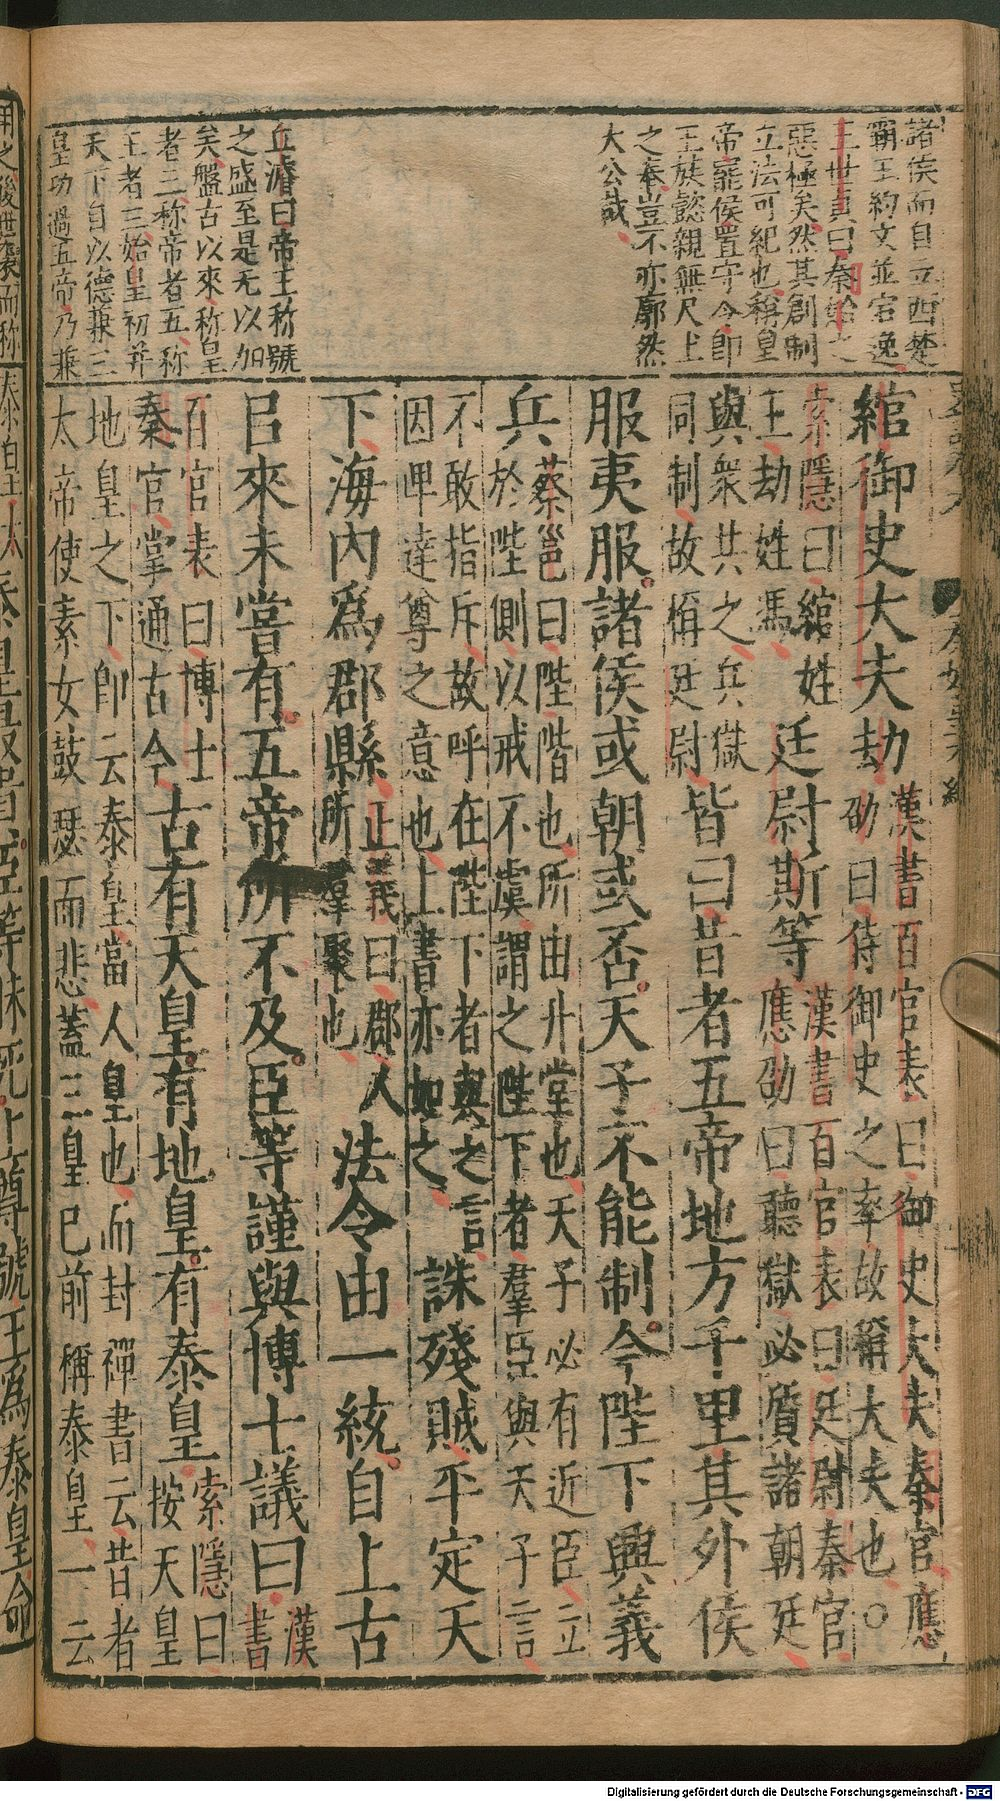 諸侯而自立西楚
霸王約文並宕逸
王世貞曰秦始之
惡極矣然其創制
立法可紀也稱皇
帝罷侯置守令即
王族懿親無尺土
之奉豈不亦廓然
大公哉
丘濬曰帝王称號
之盛至是无以加
矣盤古以來称皇
者三称帝者五称
王者三始皇初并
天下自以德兼三
皇功過五帝乃兼
綰御史大夫劫漢書百官表曰御史大夫秦官應
劭曰侍御史之率故稱大夫也○
索隱曰綰姓
王劫姓馮廷尉斯等漢書百官表曰廷尉秦官
應劭曰聽獄必質諸朝廷
與衆共之兵獄
同制故稱廷尉皆曰昔者五帝地方千里其外侯
服夷服諸侯或朝或否天子不能制今陛下興義
兵蔡邕曰陛階也所由升堂也天子必有近臣立
於陛側以戒不虞謂之陛下者羣臣與天子言
不敢指斥故呼在陛下者與之言
因卑達尊之意也上書亦如之誅殘賊平定天
下海內爲郡縣正義曰郡人
所羣聚也法令由一統自上古
㠯來未嘗有五帝所不及臣等謹與博士議曰漢
書
百官表曰博士
秦官掌通古今古有天皇有地皇有泰皇索隱曰
按天皇
地皇之下即云泰皇當人皇也而封禪書云昔者
太帝使素女鼓瑟而悲蓋三皇已前稱泰皇一云